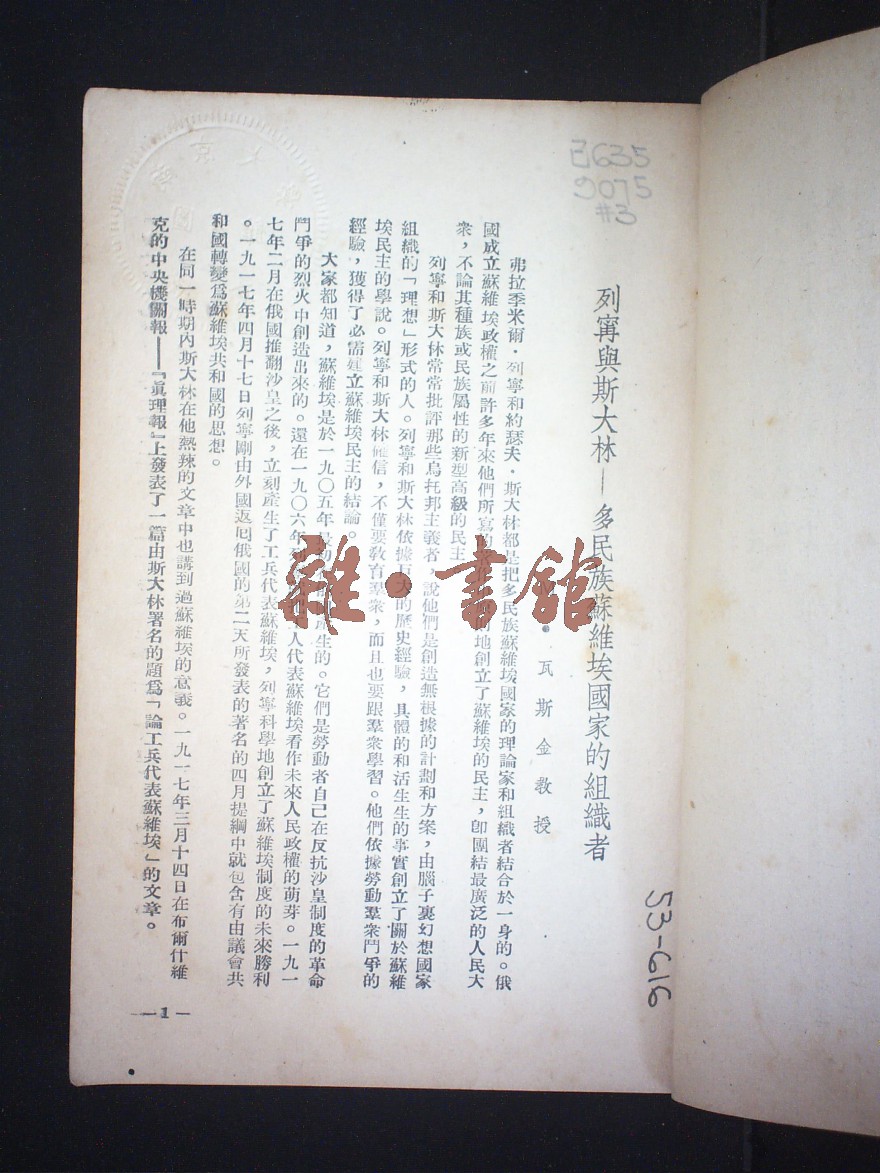 己635
9075
#3
列寗與斯大林—多民族蘇維埃國家的組織者
瓦斯金教授
弗拉季米爾·列寧和約瑟夫·斯大林都是把多民族蘇維埃國家的理論家和組織者結合於一身的。俄
國成立蘇維埃政權之前許多年來他們所寫的 地創立了蘇維埃的民主,卽團結最廣泛的人民大
衆,不論其種族或民族屬性的新型高級的民主
列寧和斯大林常常批評那些烏托邦主義者,說他們是創造無根據的計劃和方案,由腦子裏幻想國家
組織的「理想」形式的人。列寧和斯大林依據巨大的歷史經驗,具體的和活生生的事實創立了關於蘇維
埃民主的學說。列寧和斯大林確信,不僅要敎育羣衆,而且也要跟羣衆學習。他們依據勞動羣衆鬥爭的
經驗,獲得了必需建立蘇維埃民主的結論。
大家都知道,蘇維埃是於一九〇五年最初 產生的。它們是勞動者自己在反抗沙皇制度的革命
鬥爭的烈火中創造出來的。還在一九〇六年列 人代表蘇維埃看作未來人民政權的萌芽。一九一
七年二月在俄國推翻沙皇之後,立刻產生了工兵代表蘇維埃,列寧科學地創立了蘇維埃制度的未來勝利
。一九一七年四月十七日列寧剛由外國返囘俄國的第二天所發表的著名的四月提綱中就包含有由議會共
和國轉變爲蘇維埃共和國的思想。
在同一時期內斯大林在他熱辣的文章中也講到過蘇維埃的意義。一九一七年三月十四日在布爾什維
克的中央機關報——『眞理報』上發表了一篇由斯大林署名的題爲「論工兵代表蘇維埃」的文章。
— 1 —
53-616
雜·書館